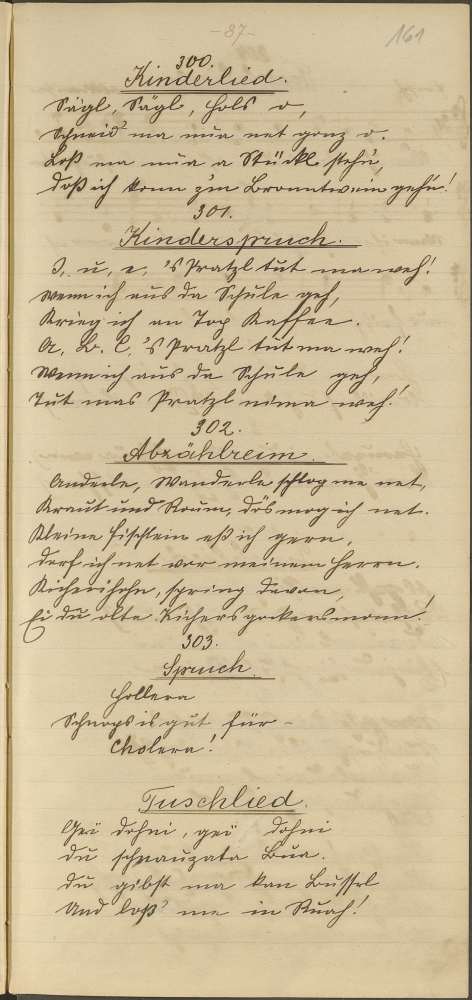 -87-
161
300.
Kinderlied.
Sägl, Sägl, hols o,
Schneid ma nua net gonz o.
Loß ma nua a Stückl stehn,
Doß ich konn zum Bronntwein gehn!
301.
Kinderspruch.
I, u, e, 's Pratzl tut ma weh!
Wenn ich aus da Schule geh,
Krieg ich an Top Kaffee.
A. B. C, 's Pratzl tut ma weh!
Wenn ich aus da Schule geh,
Tut mas Pratzl nima weh!
302.
Abzählreim.
Anderle, Wanderle schlog me net,
Kraut und Roum, dös mog ich net.
Kleine Fischlein eß ich gern,
Derf ich net vor meinem Herrn.
spring davon,
Ei du olta
303.
Spruch.
Hollera
Schnops is gut für -
Cholera!
Tuschlied.
Geü dohni, geü dohni
Du schnauzata Bua.
Du gibst ma kan Bussel
Und loß' me in Ruah!